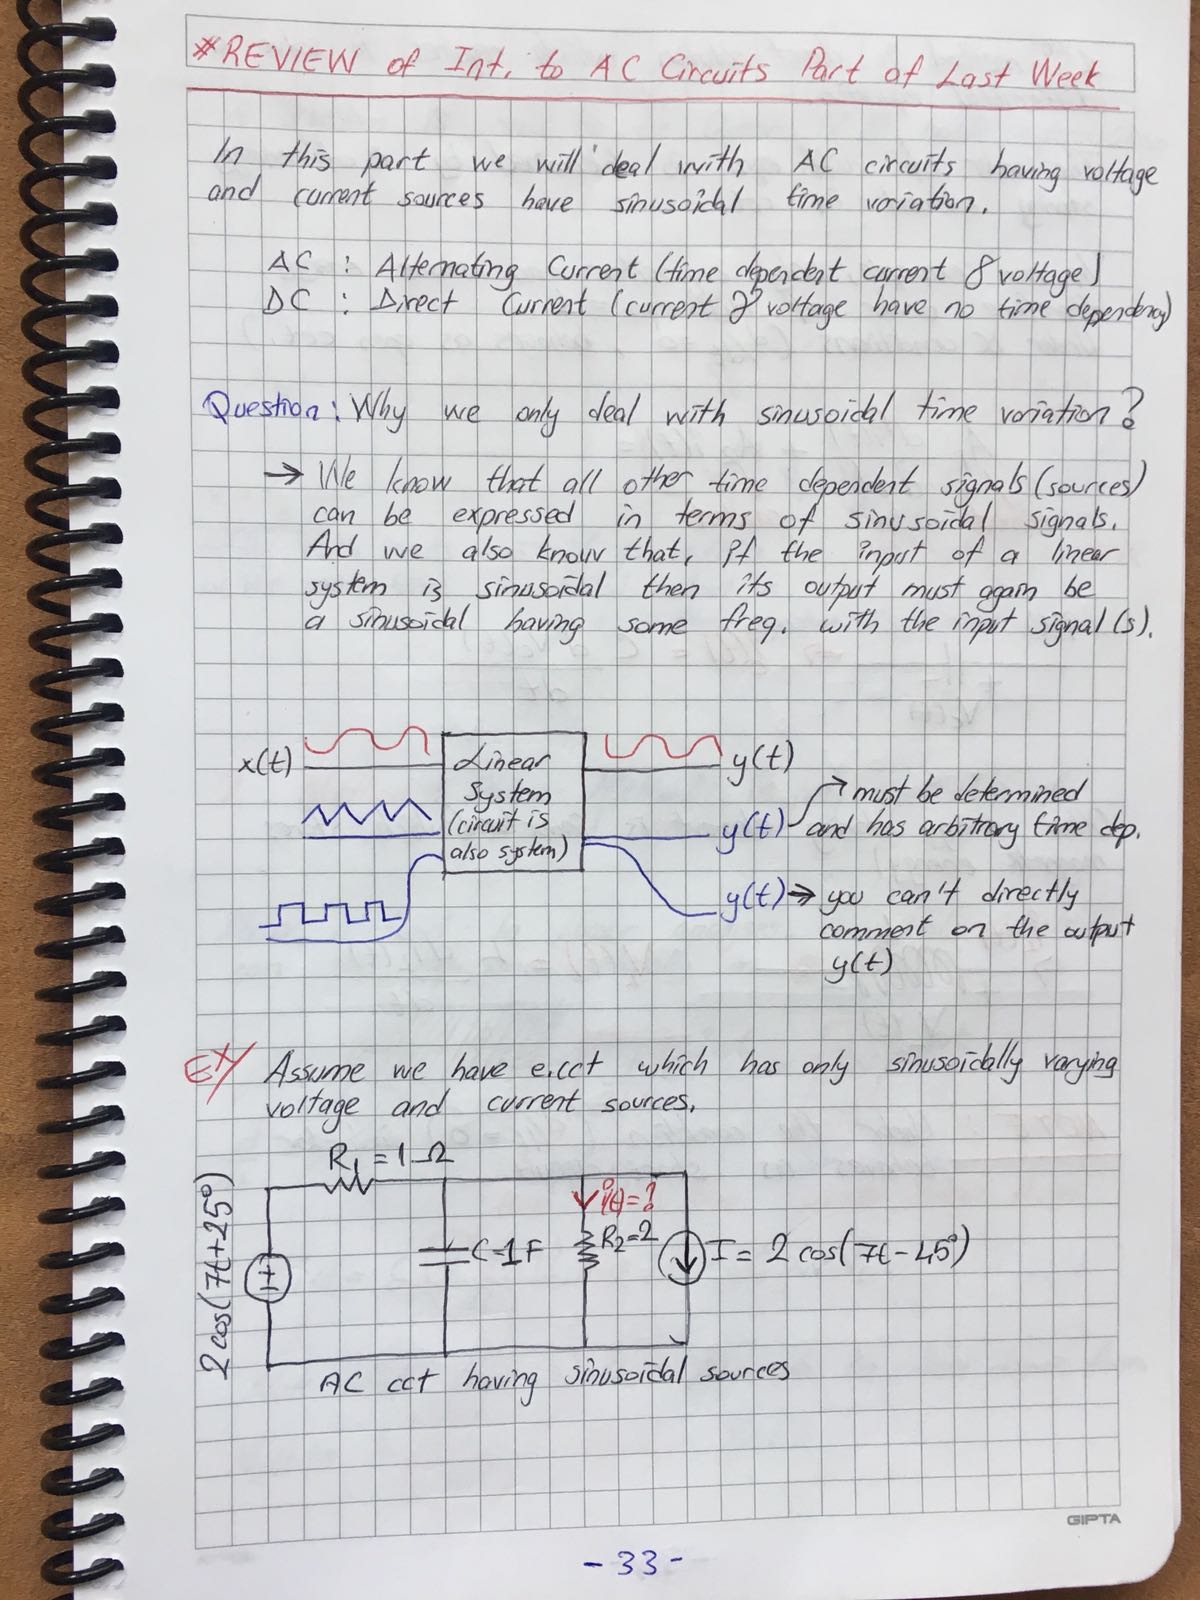 #REVIEW of Int. to AC Circuits Part of Last Week
In this part we will deal with AC circuits having voltage
and current sources have sinusoidal time variation.
AC : Alternating Current (time dependent current & voltage)
DC : Direct Current (current & voltage have no time dependency)
Question: Why we only deal with sinusoidal time variation?
→ We know that all other time dependent signals (sources)
can be expressed in terms of sinusoidal signals.
And we also know that, if the input of a linear
system is sinusoidal then its output must again be
a sinusoidal having some freq. with the input signal(s).
x(t)
Linear
System
(circuit is
also system)
y(t)
y(t) → must be determined
and has arbitrary time dep.
y(t) → you can't directly
comment on the output
y(t)
Ex/ Assume we have e.cct which has only sinusoidally varying
voltage and current sources.
R1 = 1 Ω
2 cos(7t+25°)
C=1F
i(t)=?
R2=2
I = 2 cos(7t-45°)
AC cct having sinusoidal sources
GIPTA
-33-